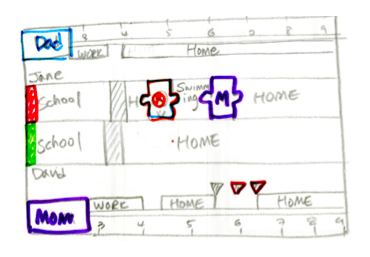 Dad 3 4 5 6 7 8 9
WORK Home
Jane
School H Swimm
ing M HOME
School HOME
David
Mom WORK HOME HOME
3 4 5 6 7 8 9